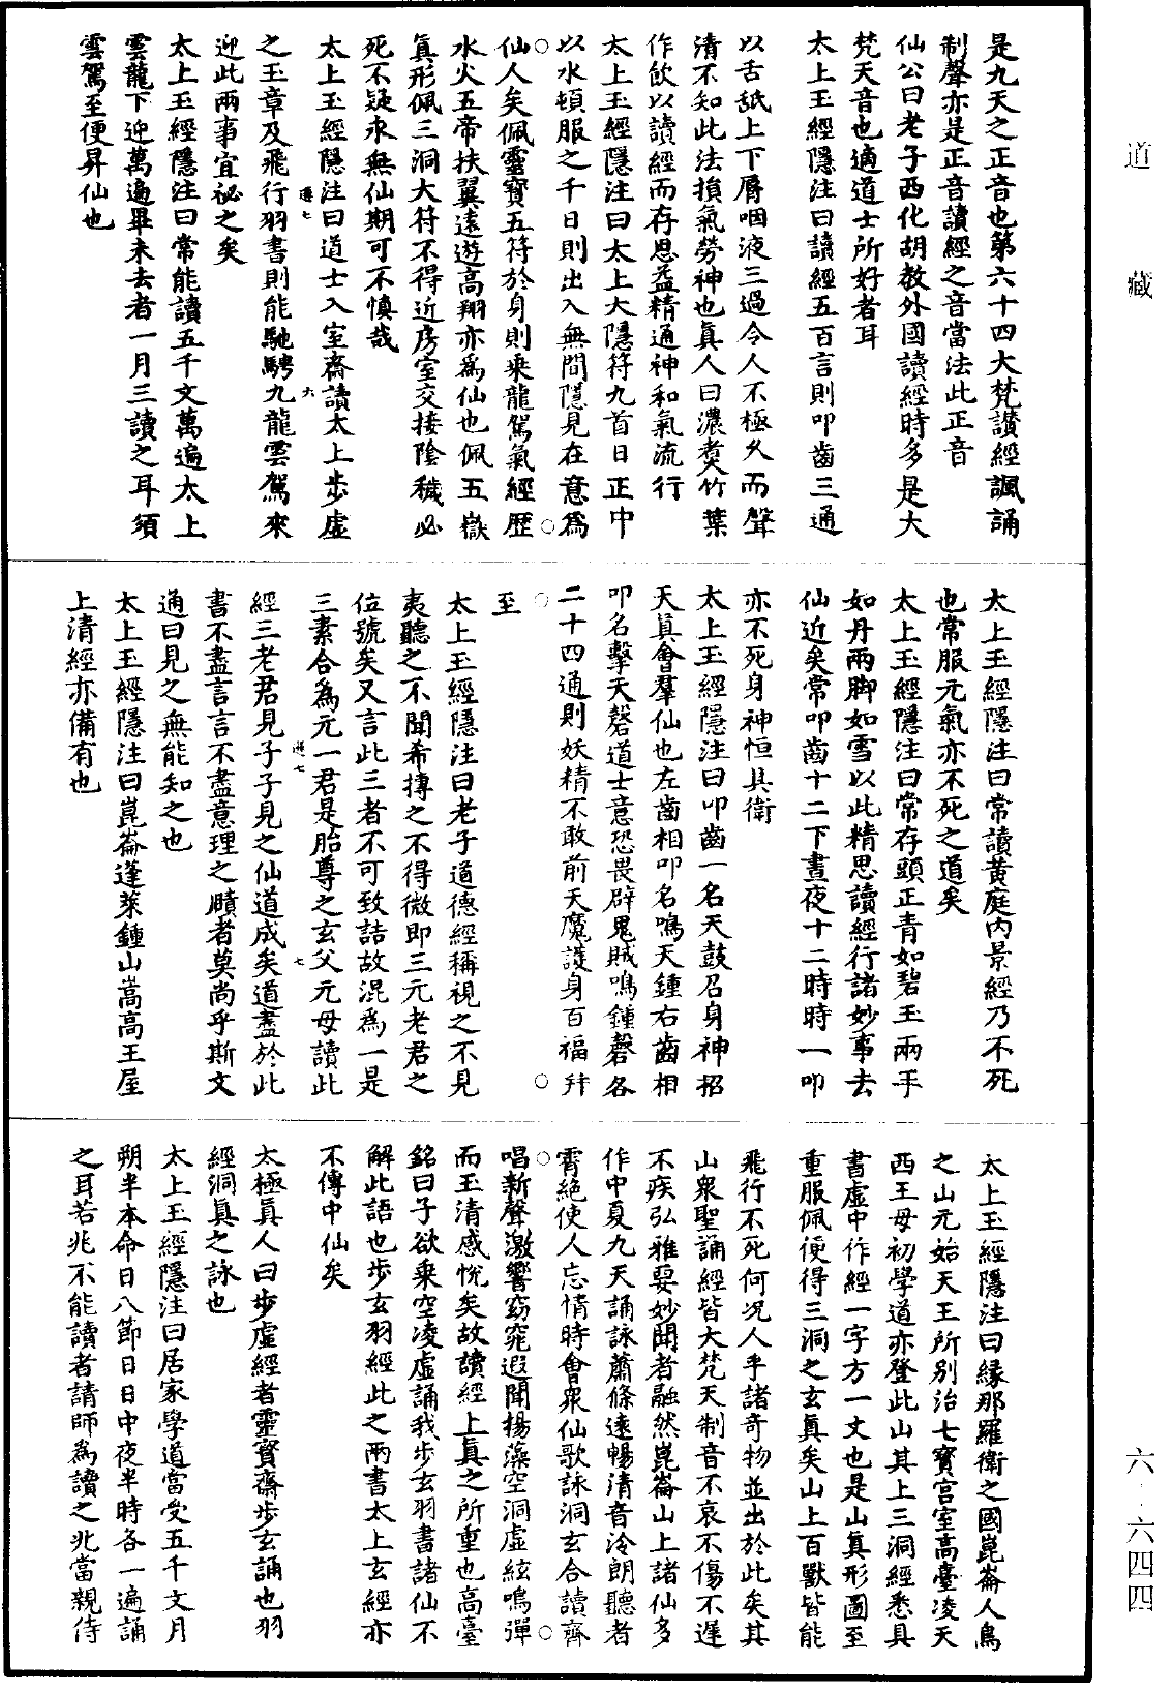 道藏
六‧六四四
是九天之正音也第六十四大梵讃經諷誦
制聲亦是正音讀經之音當法此正音
仙公曰老子西化胡教外國讀經時多是大
梵天音也適道士所好者耳
太上玉經隱注曰讀經五百言則叩齒三通
以舌舐上下脣咽液三過令人不極久而聲
清不知此法損氣勞神也真人曰濃煑竹葉
作飲以讀經而存思益精通神和氣流行
太上玉經隱注曰太上大隱符九首日正中
以水頓服之千日則出入無間隱見在意爲
仙人矣佩靈寳五符於身則乘龍駕氣經歷
水火五帝扶翼遠遊高翔亦爲仙也佩五嶽
真形佩三洞大符不得近房室交接陰穢必
死不疑永無仙期可不慎哉
太上玉經隱注曰道士入室齋讀太上步虛
之玉章及飛行羽書則能馳騁九龍雲駕來
迎此兩事宜祕之矣
太上玉經隱注曰常能讀五千文萬遍太上
雲龍下迎萬遍畢未去者一月三讀之耳須
雲駕至便昇仙也
太上玉經隱注曰常讀黄庭內景經乃不死
也常服元氣亦不死之道矣
太上玉經隱注曰常存頭正青如碧玉兩手
如丹兩脚如雪以此精思讀經行諸妙事去
仙近矣常叩齒十二下晝夜十二時時一叩
亦不死身神恒具衛
太上玉經隱注曰叩齒一名天鼓召身神招
天真會羣仙也左齒相叩名鳴天鍾右齒相
叩名擊天磬道士意恐畏辟鬼賊鳴鍾磬各
二十四通則妖精不敢前天魔護身百福幷
至
太上玉經隱注曰老子道德經稱視之不見
夷聽之不聞希摶之不得微即三元老君之
位號矣又言此三者不可致詰故混爲一是
三素合爲元一君是胎尊之玄父元母讀此
經三老君見子子見之仙道成矣道盡於此
書不盡言言不盡意理之賾者莫尚乎斯文
通曰見之無能知之也
太上玉經隱注曰崑崙蓬萊鍾山嵩高王屋
上清經亦備有也
太上玉經隱注曰縁那羅衛之國崑崙人鳥
之山元始天王所別治七寳宫室高臺凌天
西王母初學道亦登此山其上三洞經悉具
書虛中作經一字方一丈也是山真形圖至
重服佩便得三洞之玄真矣山上百獸皆能
飛行不死何况人乎諸奇物並出於此矣其
山衆聖誦經皆大梵天制音不哀不傷不遲
不疾弘雅要妙聞者融然崑崙山上諸仙多
作中夏九天誦詠蕭條遠暢清音泠朗聽者
霄絶使人忘情時會衆仙歌詠洞玄合讀齊
唱新聲激響窈窕遐聞揚藻空洞虛絃鳴彈
而玉清感悅矣故讀經上真之所重也高臺
銘曰子欲乘空凌虛誦我步玄羽書諸仙不
解此語也步玄羽經此之兩書太上玄經亦
不傳中仙矣
太極真人曰步虛經者靈寳齋步玄誦也羽
經洞真之詠也
太上玉經隱注曰居家學道當受五千文月
朔半本命日八節日日中夜半時各一遍誦
之耳若兆不能讀者請師爲讀之兆當親侍